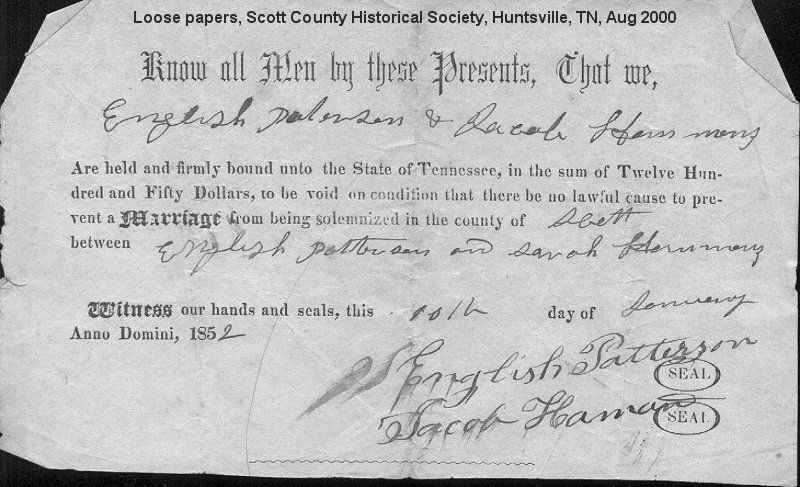 Loose papers, Scott County Historical Society, Huntsville, TN, Aug 2000
Know all Men by these Presents, That we,
English Paterson & Jacob
Are held and firmly bound unto the State of Tennessee, in the sum of Twelve Hun-
dred and Fifty Dollars, to be void on condition that there be no lawful cause to pre-
vent a Marriage from being solemnized in the county of Scott
between English Patterson and Sarah
Witness our hands and seals, this 10th day of January
Anno Domini, 1852
English Patterson
SEAL
Jacob Haman
SEAL